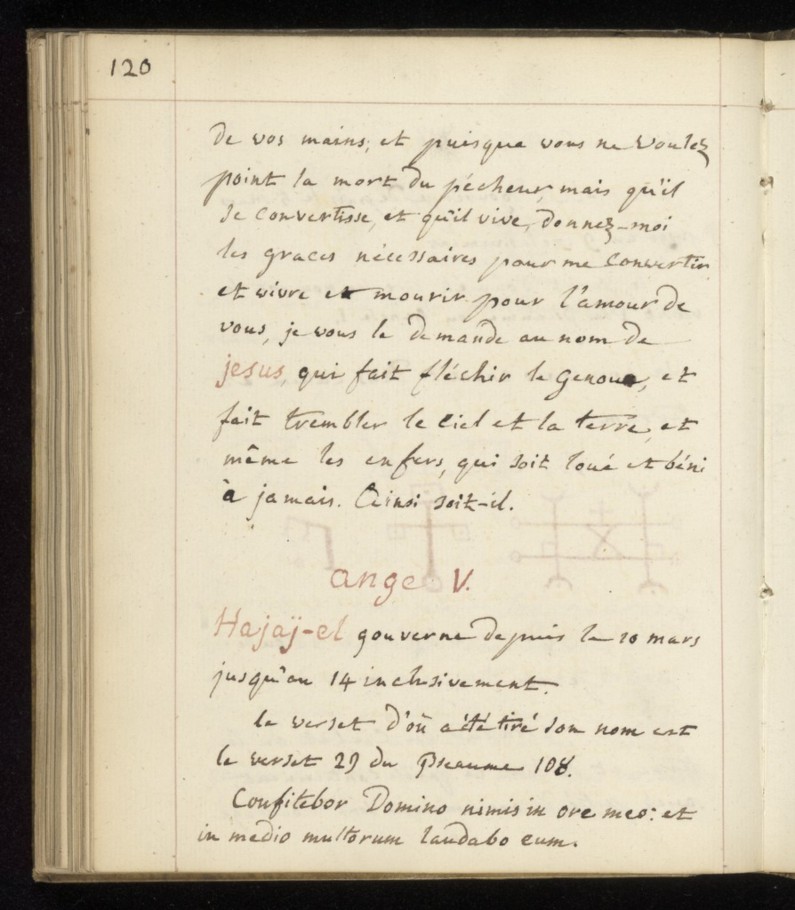 120
de vos mains, et puisque vous ne voulez
point la mort du pécheur, mais qu'il
se convertisse, et qu'il vive, donnez-moi
les graces nécessaires pour me convertir
et vivre et mourir pour l'amour de
vous, je vous le demande au nom de
jesus, qui fait fléchir le genou, et
fait trembler le ciel et la terre, et
même les enfers, qui soit loué et béni
à jamais. Ainsi soit-il.
ange V.
Hajaÿ-el gouverne depuis le 10 mars
jusqu'au 14 inclusivement.
le verset d'où a été tiré son nom est
le verset 29 du Pseaume 108.
Confitebor Domino nimis in ore meo: et
in medio multorum laudabo eum.